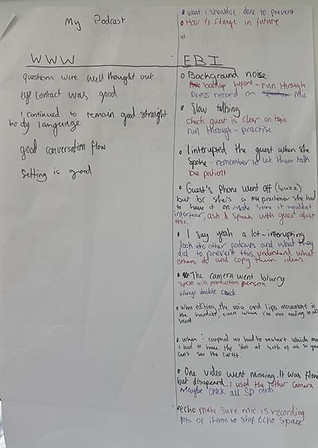 My Podcast
WWW
questions were well thought out
eye contact was good
I continued to remain good straight
body language
good conversation flow
Setting is good
what I should've done to prevent
How to change in future
EBI
Background noise
backup before - run through
record on mic
Slow talking
Check guest is clear on tape
run through - practise
I interrupted the guest when she
spoke - remember to let them talk
be patient
Guest's phone went off (buzz)
but bc she's a my practitioner she had
to have it on make sure it wouldn't
interfear, ask & speak with guest about
this.
I say yeah a lot - interrupting
look into other podcasts and what they
did to prevent this understand what
others do and copy their ideas
The camera went blurry
speak with production person
always double check
when editing the voice and lips movement
the hardest, even when I'm not
sound
when I we had to restart which
I had to have the shot at both of us so you
can't see the
One video went missing. It was filmed
but disapeard. I used the other camera
Maybe check all SD cards
echo make sure mic is recording
lots of items to stop echo space